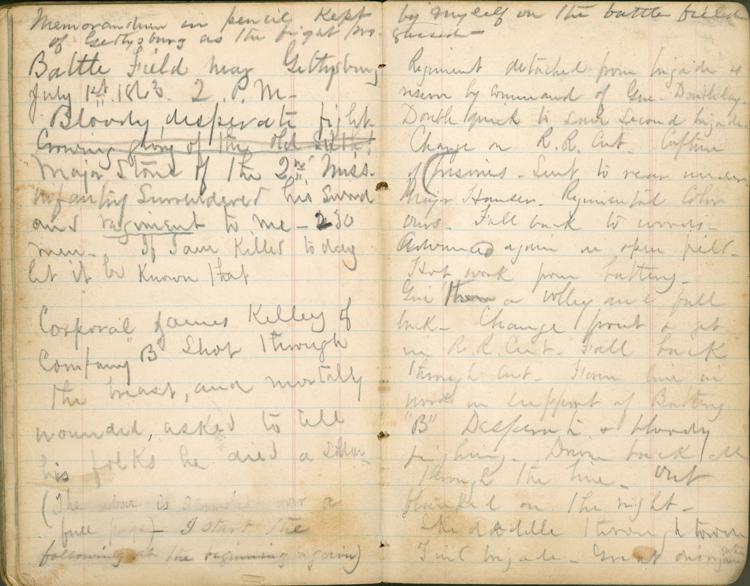 Memorandum in pencil kept
of Gettysburg as the fight pro-
Battle Field near Gettysburg
July 1st 1863. 2 P.M.
Bloody desperate fight
Crowning glory of the old Sixth!
Major Stone of the 2nd Miss.
infantry Surrendered his Sword
and regiment to me - 230
men. If I am Killed today
let it be Known that
Corporal James Kelley of
Company "B" Shot through
the breast, and mortally
wounded, asked to tell
his folks he died a Soldier
(The above is over a
full page) - I start the
following at the beginning again)
by myself on the battle field
gressed -
Regiment detached from brigade as
reserve by command of Gen. Doubleday
Double quick to Second brigade
Charge on R.R. Cut. Capture
of prisoners - Sent to rear under
Major Hauser. Regimental Color
ours. Fall back to woods.
Advanced again in open field.
Hot work from battery.
Give them a volley and fall
back - Change front & get
in R.R. Cut. Fall back
through Cut. Form line in
woods in support of Battery
"B" Desperate & bloody
fighting. Driven back all
through the line - Out
flanked on the right -
Skedaddle through town
First brigade - Great